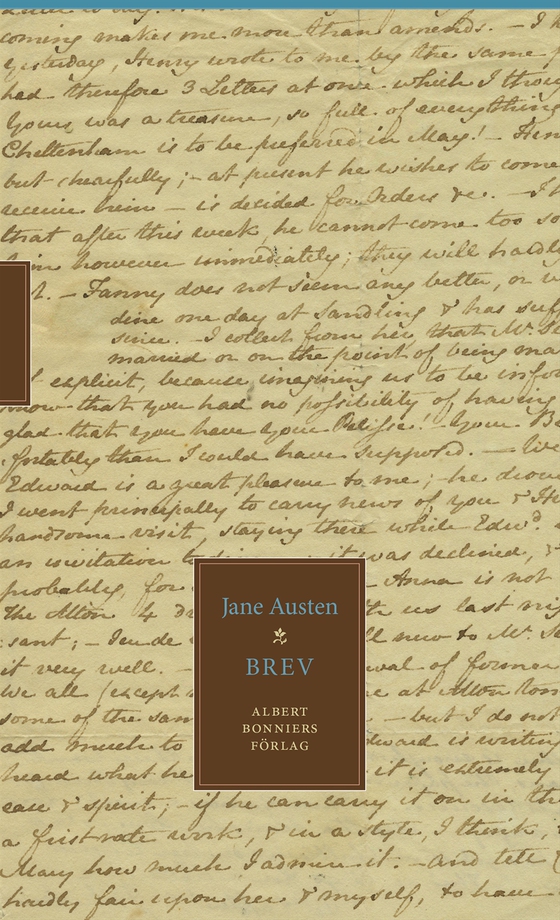 coming makes me more than amends. — I h
Yesterday, Henry wrote to me by the same p
had therefore 3 Letters at once which I thou
Yours was a treasure, so full of everything
Cheltenham is to be preferred in May! — Hen
but chearfully; — at present he wishes to come
receive him — is decided for Orders &c. — I h
that after this week he cannot come too so
him however immediately; they will hardly
t. — Fanny does not seem any better, or
dine one day at Sandling & has suf
since. — I collect from her, that Mr.
married or on the point of being ma
explicit, because imagining us to be infor
know that you had no possibility of having
glad that you have your Pelisse! — Your
fortably than I could have supposed. —
Edward is a great pleasure to me; — he drove
I went principally to carry news of you & He
handsome visit, staying there while Edwd.
an invitation to it was declined,
probably, for — Anna is not
the Alton 4 us last nig
sant; — ll new to Mr.
it very well. — of former
We all (except at Alton tom
some of the sam — but I do not
add much to Edward is writing
heard what he it is extremely
ease & spirit; — if he can carry it on in th
a first-rate work, & in a style, I think,
Mary how much I admire it. — And tell
hardly fair upon her & myself, to have
Jane Austen
BREV
ALBERT
BONNIERS
FÖRLAG